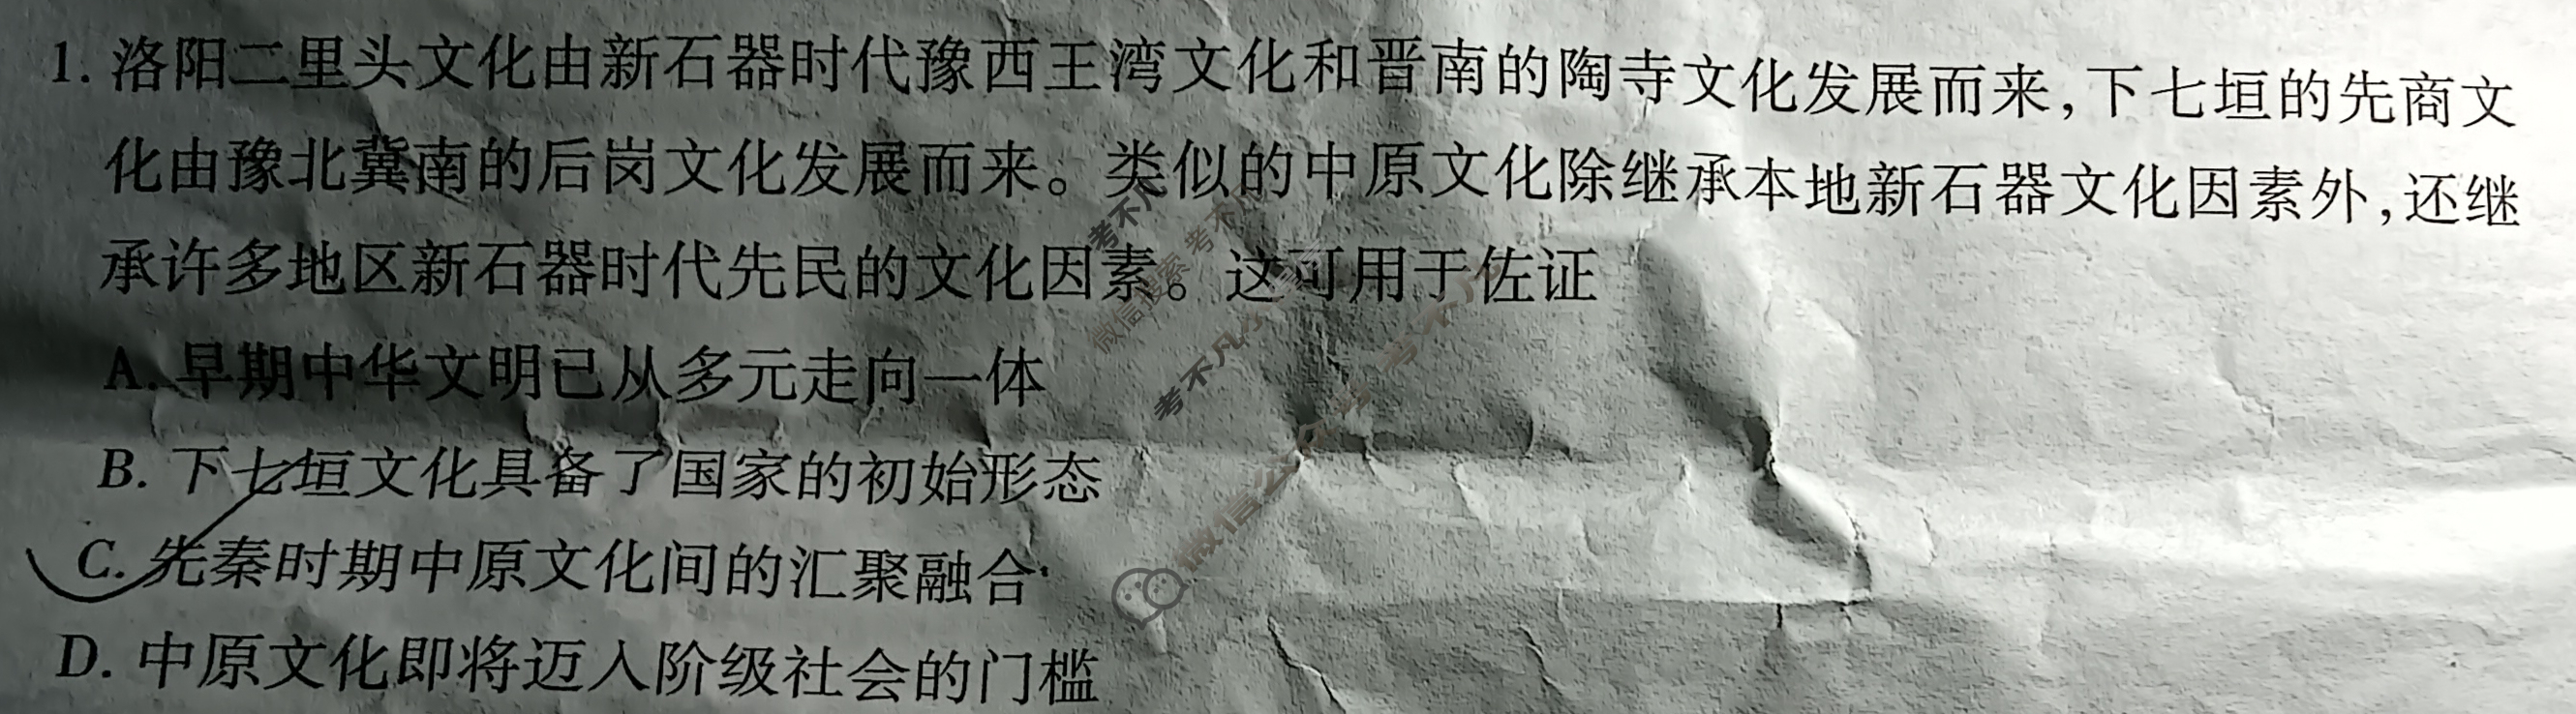 1. 洛阳二里头文化由新石器时代豫西王湾文化和晋南的陶寺文化发展而来,下七垣的先商文
化由豫北冀南的后岗文化发展而来。类似的中原文化除继承本地新石器文化因素外,还继
承许多地区新石器时代先民的文化因素。这可用于佐证
A. 早期中华文明已从多元走向一体
B. 下七垣文化具备了国家的初始形态
C. 先秦时期中原文化间的汇聚融合
D. 中原文化即将迈入阶级社会的门槛